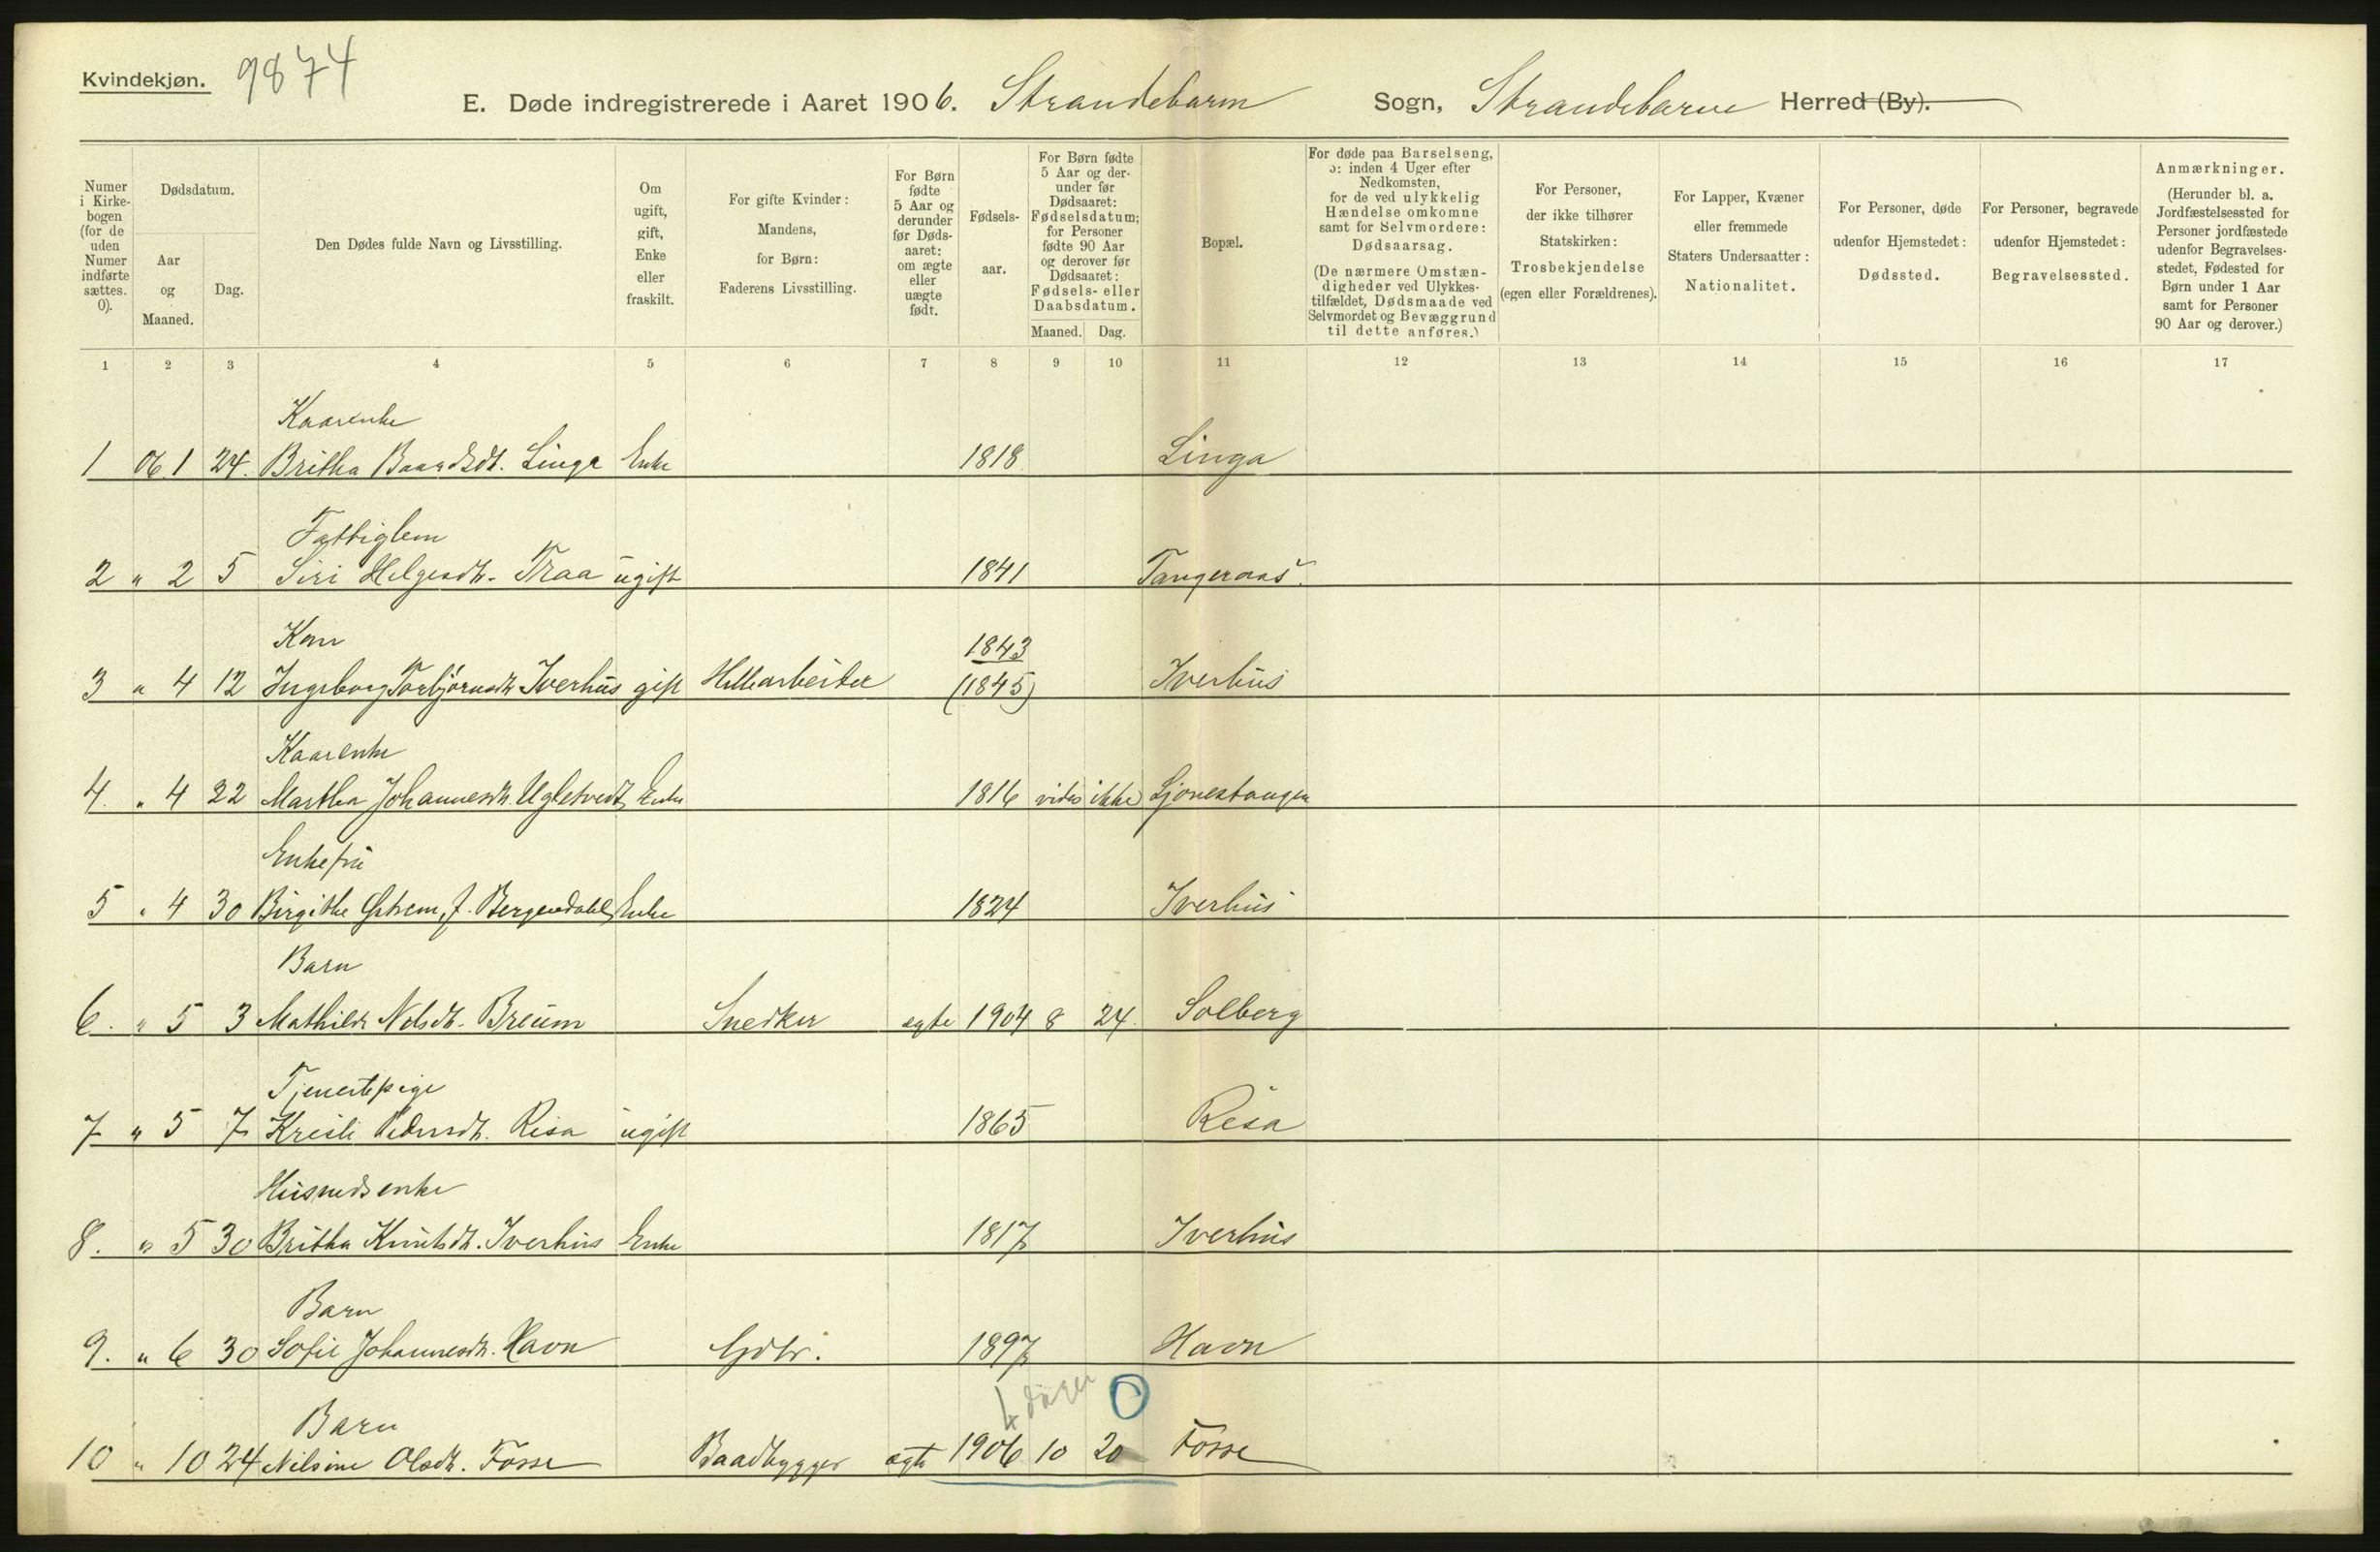 Kvindekjøn. 9874
E. Døde indregistrerede i Aaret 1906. Strandebarm Sogn, Strandebarm Herred (By).
Numer i Kirke-bogen (for de uden Numer indførte sættes. 0).
Dødsdatum.
Aar og Maaned.
Dag.
Den Dødes fulde Navn og Livsstilling.
Om ugift, gift, Enke eller fraskilt.
For gifte Kvinder: Mandens, for Børn: Faderens Livsstilling.
For Børn fødte 5 Aar og derunder før Døds-aaret: om ægte eller uægte født.
Fødsels-aar.
For Børn fødte 5 Aar og der-under før Dødsaaret: Fødselsdatum; for Personer fødte 90 Aar og derover før Dødsaaret: Fødsels- eller Daabsdatum.
Maaned. Dag.
Bopæl.
For døde paa Barselseng, ɔ: inden 4 Uger efter Nedkomsten, for de ved ulykkelig Hændelse omkomne samt for Selvmordere: Dødsaarsag.
(De nærmere Omstæn-digheder ved Ulykkes-tilfældet, Dødsmaade ved Selvmordet og Bevæggrund til dette anføres.)
For Personer, der ikke tilhører Statskirken: Trosbekjendelse (egen eller Forældrenes).
For Lapper, Kvæner eller fremmede Staters Undersaatter: Nationalitet.
For Personer, døde udenfor Hjemstedet: Dødssted.
For Personer, begravede udenfor Hjemstedet: Begravelsessted.
Anmærkninger.
(Herunder bl. a. Jordfæstelsessted for Personer jordfæstede udenfor Begravelses-stedet, Fødested for Børn under 1 Aar samt for Personer 90 Aar og derover.)
1 2 3 4 5 6 7 8 9 10 11 12 13 14 15 16 17
Kaarenke
1 06.1 24. Britha Baardsdt. Linga Enke 1818 Linga
Fattiglem
2 " 2 5 Siri Helgesdt. Traa ugift 1841 Tangeraas
Kone 1843
3 " 4 12 Ingeborg Torbjørnsdt Iverhus gift (1845) Iverhus
Kaarenke
4. " 4 22 Martha Johannesdt. Enke 1816 vides ikke Ljonestangen
Enkefru
5 " 4 30 Birgithe f. Bergendahl Enke 1824 Iverhus
Barn
6. " 5 3 Mathilde Nilsdt. Breum Snedker ægte 1904 8 24. Solberg
Tjenestepige
7 " 5 7 Kristi Pedersdt. Risa ugift 1865 Risa
Husmdsenke
8. " 5 30 Britha Knutsdt. Iverhus Enke 1817 Iverhus
Barn
9. " 6 30 Sofie Johannesdt. Havn Gdbr. 1897 Havn
4 dager 0
Barn
10 " 10 24 Nilsine Olsdt. Fosse Baadbygger ægte 1906 10 20 Fosse